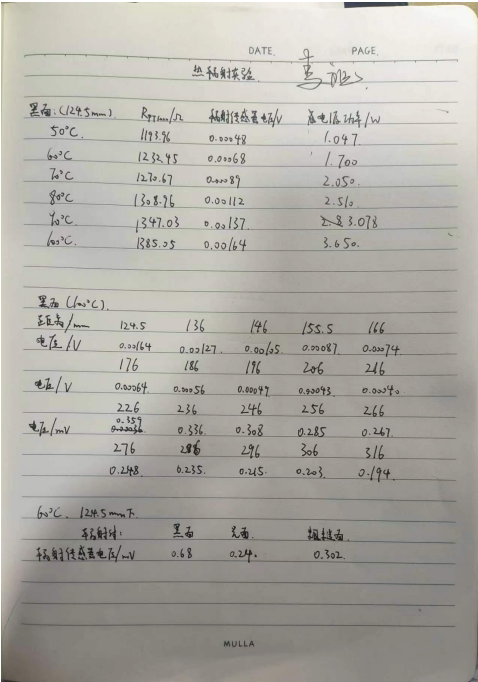 DATE. PAGE.
热辐射实验
黑面:(124.5mm) R_PT1000/Ω 辐射传感器电压/V 底电阻功率/W
50°C. 1193.96 0.00048 1.047
60°C 1232.45 0.00068 1.700
70°C 1270.67 0.00089 2.050.
80°C 1308.96 0.00112 2.510.
90°C 1347.03 0.00137. 3.078
100°C. 1385.05 0.00164 3.650.
黑面(100°C).
距离/mm 124.5 136 146 155.5 166
电压/V 0.00164 0.00127. 0.00105. 0.00087 0.00074
176 186 196 206 216
电压/V 0.00064. 0.00056 0.00049 0.00043. 0.00040
226 236 246 256 266
电压/mV 0.359 0.336. 0.308 0.285 0.267.
276 286 296 306 316
0.248. 0.235. 0.215. 0.203. 0.194.
60°C. 124.5mm下.
辐射体: 黑面 光面. 粗糙面.
辐射传感器电压/mV 0.68 0.240. 0.302.
MULLA